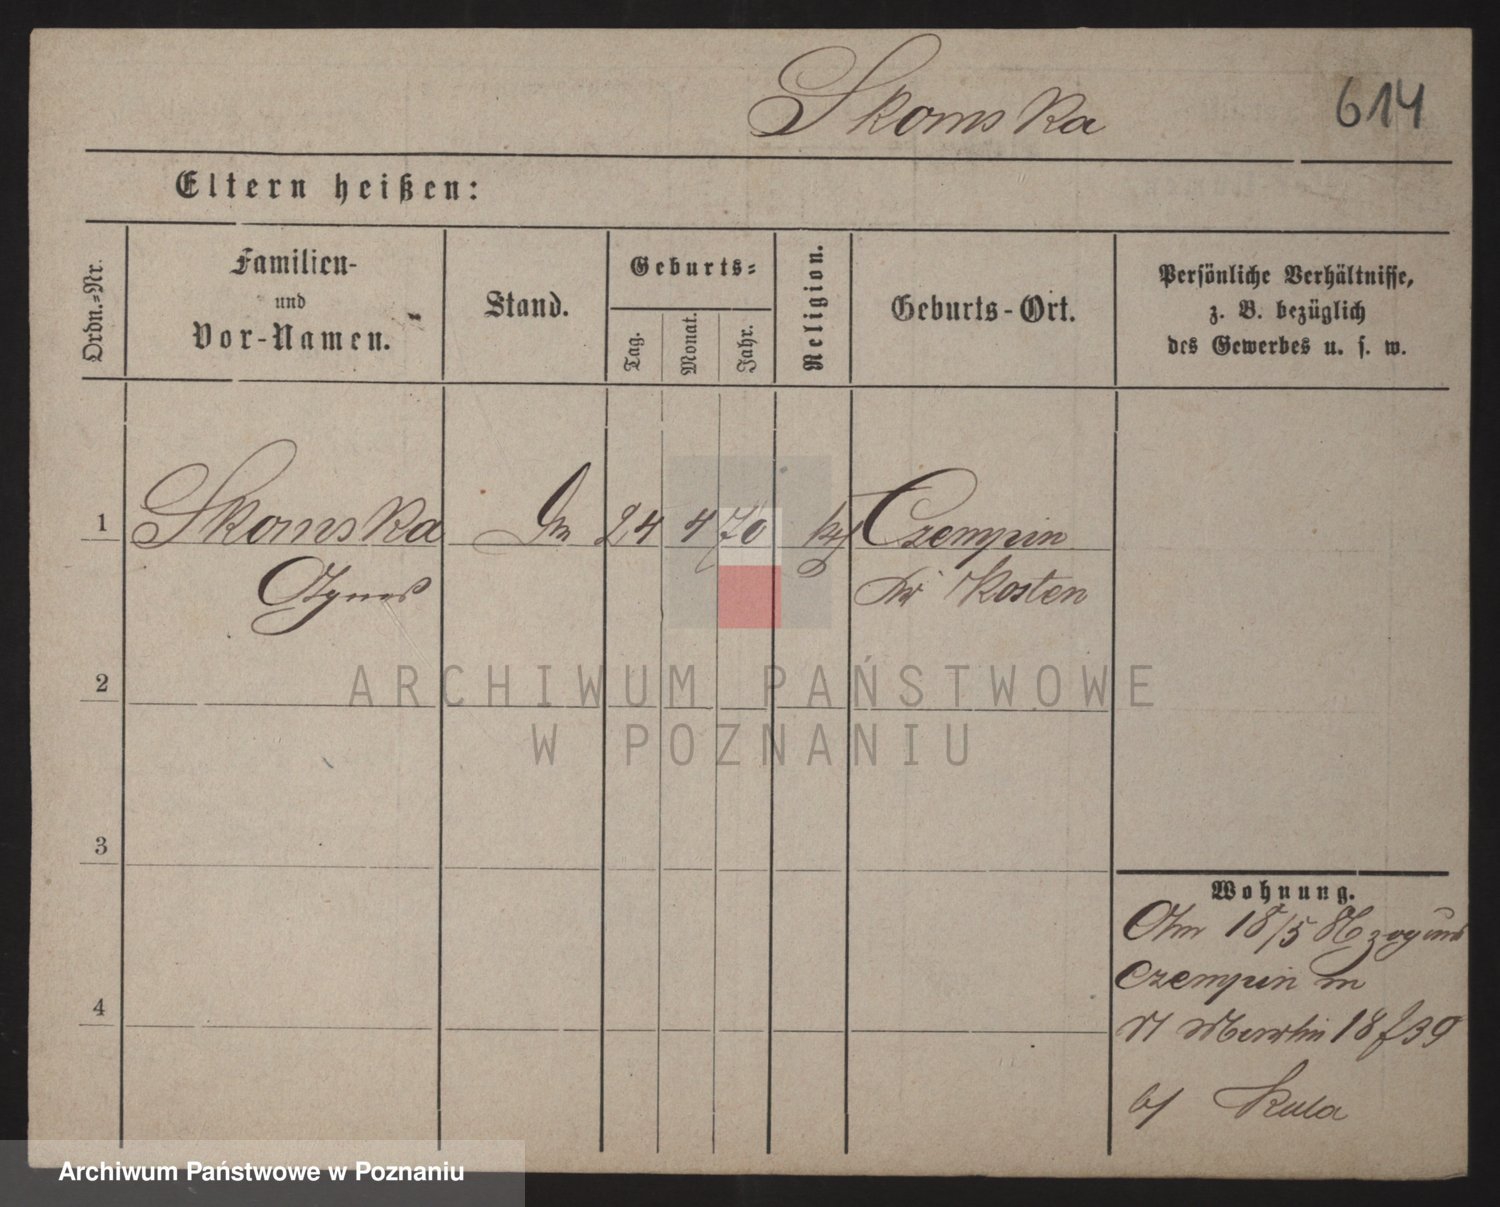 Skomska
614
Eltern heißen:
Ordn.-Nr.
Familien-
und
Vor-Namen.
Stand.
Geburts-
Tag.
Monat.
Jahr.
Religion.
Geburts-Ort.
Persönliche Verhältnisse,
z. B. bezüglich
des Gewerbes u. s. w.
1 Skomska 24 4 70 Czempin
Agnes Kosten
2
3
4
Wohnung.
18/5
Czempin
St Martin 18 39
b/ Kula
ARCHIWUM PAŃSTWOWE
W POZNANIU
Archiwum Państwowe w Poznaniu